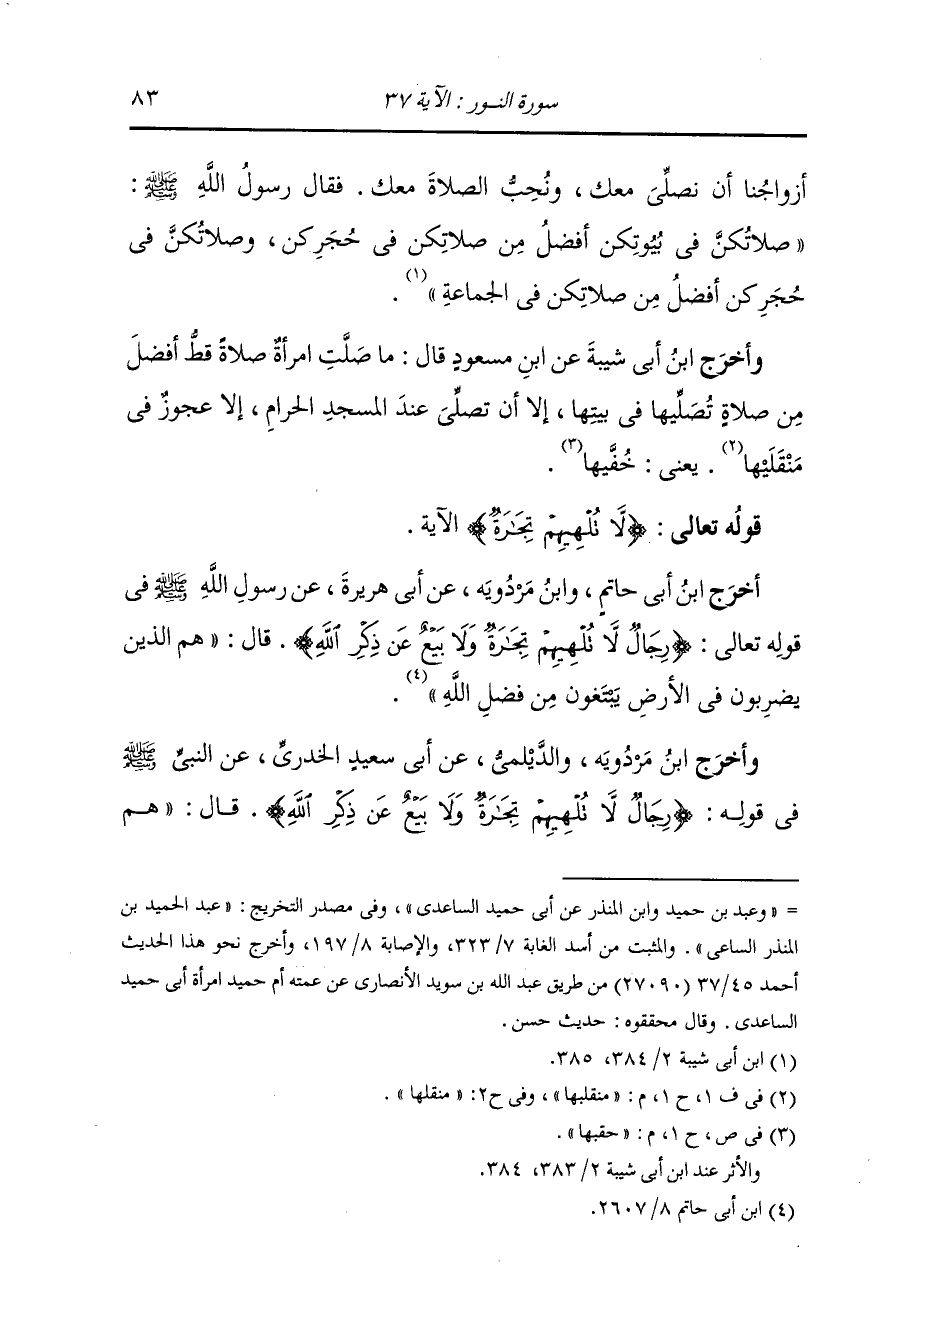 سورة النــور : الآية ٣٧ ٨٣
أزواجُنا أن نصلِّىَ معك ، ونُحِبُّ الصلاةَ معك . فقال رسولُ اللَّهِ ﷺ :
« صلاتُكنَّ فى بُيُوتِكن أفضلُ مِن صلاتِكن فى حُجَرِكن ، وصلاتُكنَّ فى
حُجَرِكن أفضلُ مِن صلاتِكن فى الجماعةِ »(١) .
وأخرَج ابنُ أبى شيبةَ عن ابنِ مسعودٍ قال : ما صَلَّتِ امرأةٌ صلاةً قطُّ أفضلَ
مِن صلاةٍ تُصَلِّيها فى بيتِها ، إلا أن تصلِّىَ عندَ المسجدِ الحرامِ ، إلا عجوزٌ فى
مَنْقَلَيْها(٢) . يعنى : خُفَّيها(٣) .
قولُه تعالى : ﴿لَّا تُلْهِيهِمْ تِجَٰرَةٌ﴾ الآية .
أخرَج ابنُ أبى حاتمٍ ، وابنُ مَرْدُويَه ، عن أبى هريرةَ ، عن رسولِ اللَّهِ ﷺ فى
قولِه تعالى : ﴿رِجَالٌ لَّا تُلْهِيهِمْ تِجَٰرَةٌ وَلَا بَيْعٌ عَن ذِكْرِ ٱللَّهِ﴾ . قال : « هم الذين
يضرِبون فى الأرضِ يَبْتَغون مِن فضلِ اللَّهِ »(٤) .
وأخرَج ابنُ مَرْدُويَه ، والدَّيْلمىُّ ، عن أبى سعيدٍ الخدرىِّ ، عن النبىِّ ﷺ
فى قولِـه : ﴿رِجَالٌ لَّا تُلْهِيهِمْ تِجَٰرَةٌ وَلَا بَيْعٌ عَن ذِكْرِ ٱللَّهِ﴾ . قـال : « هـم
= « وعبد بن حميد وابن المنذر عن أبى حميد الساعدى » ، وفى مصدر التخريج : « عبد الحميد بن
المنذر الساعى » . والمثبت من أسد الغابة ٧/ ٣٢٣، والإصابة ٨/ ١٩٧، وأخرج نحو هذا الحديث
أحمد ٤٥/ ٣٧ (٢٧٠٩٠) من طريق عبد الله بن سويد الأنصارى عن عمته أم حميد امرأة أبى حميد
الساعدى . وقال محققوه : حديث حسن .
(١) ابن أبى شيبة ٢/ ٣٨٤، ٣٨٥.
(٢) فى ف ١، ح ١، م : « منقلبها » ، وفى ح٢: « منقلها » .
(٣) فى ص ، ح ١، م : « حقبها » .
والأثر عند ابن أبى شيبة ٢/ ٣٨٣، ٣٨٤.
(٤) ابن أبى حاتم ٨/ ٢٦٠٧.